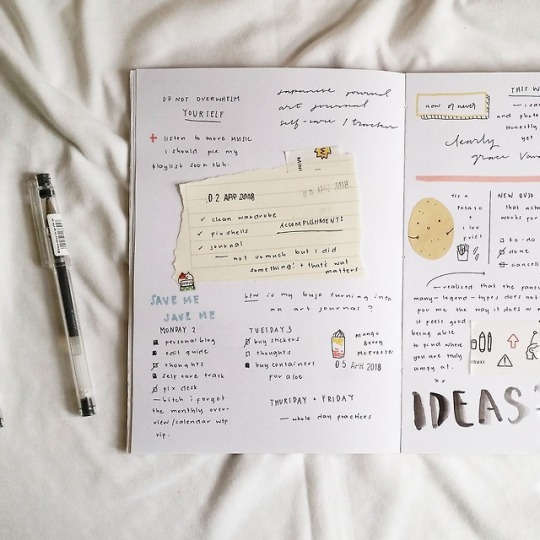 DO NOT OVERWHELM
YOURSELF
japanese journal
art journal
self-care / tracker
+ listen to more MUSIC
I should pix my
playlist soon tbh.
MINI
02 APR 2018
05 APR 2018
✓ clean wardrobe
✓ fix shells
✓ journal
ACCOMPLISHMENTS
— not so much but I did
something! + that's wat
matters
SAVE ME
SAVE ME
MONDAY 2
personal blog
edit guide
thoughts
self care track
fix desk
— bitch i forgot
the monthly over-
view/calendar wtp
rip.
btw is my bujo turning into
an art journal?
TUESDAY 3
buy stickers
thoughts
buy containers
for aloe
mango
berry
05 APR 2018
THURSDAY + FRIDAY
— whole day practices
now or never
THIS W
and photo
Honestly
yet
clearly
grace Van
it's a
potato
+ i luv
fries
NEW BUJO
that actu
works for
to-do
done
cancell
— realised that the
many-legend-types does not
for me the way it does
it feels good
being able
to find where
you are truly
comfy at.
xx
IDEAS